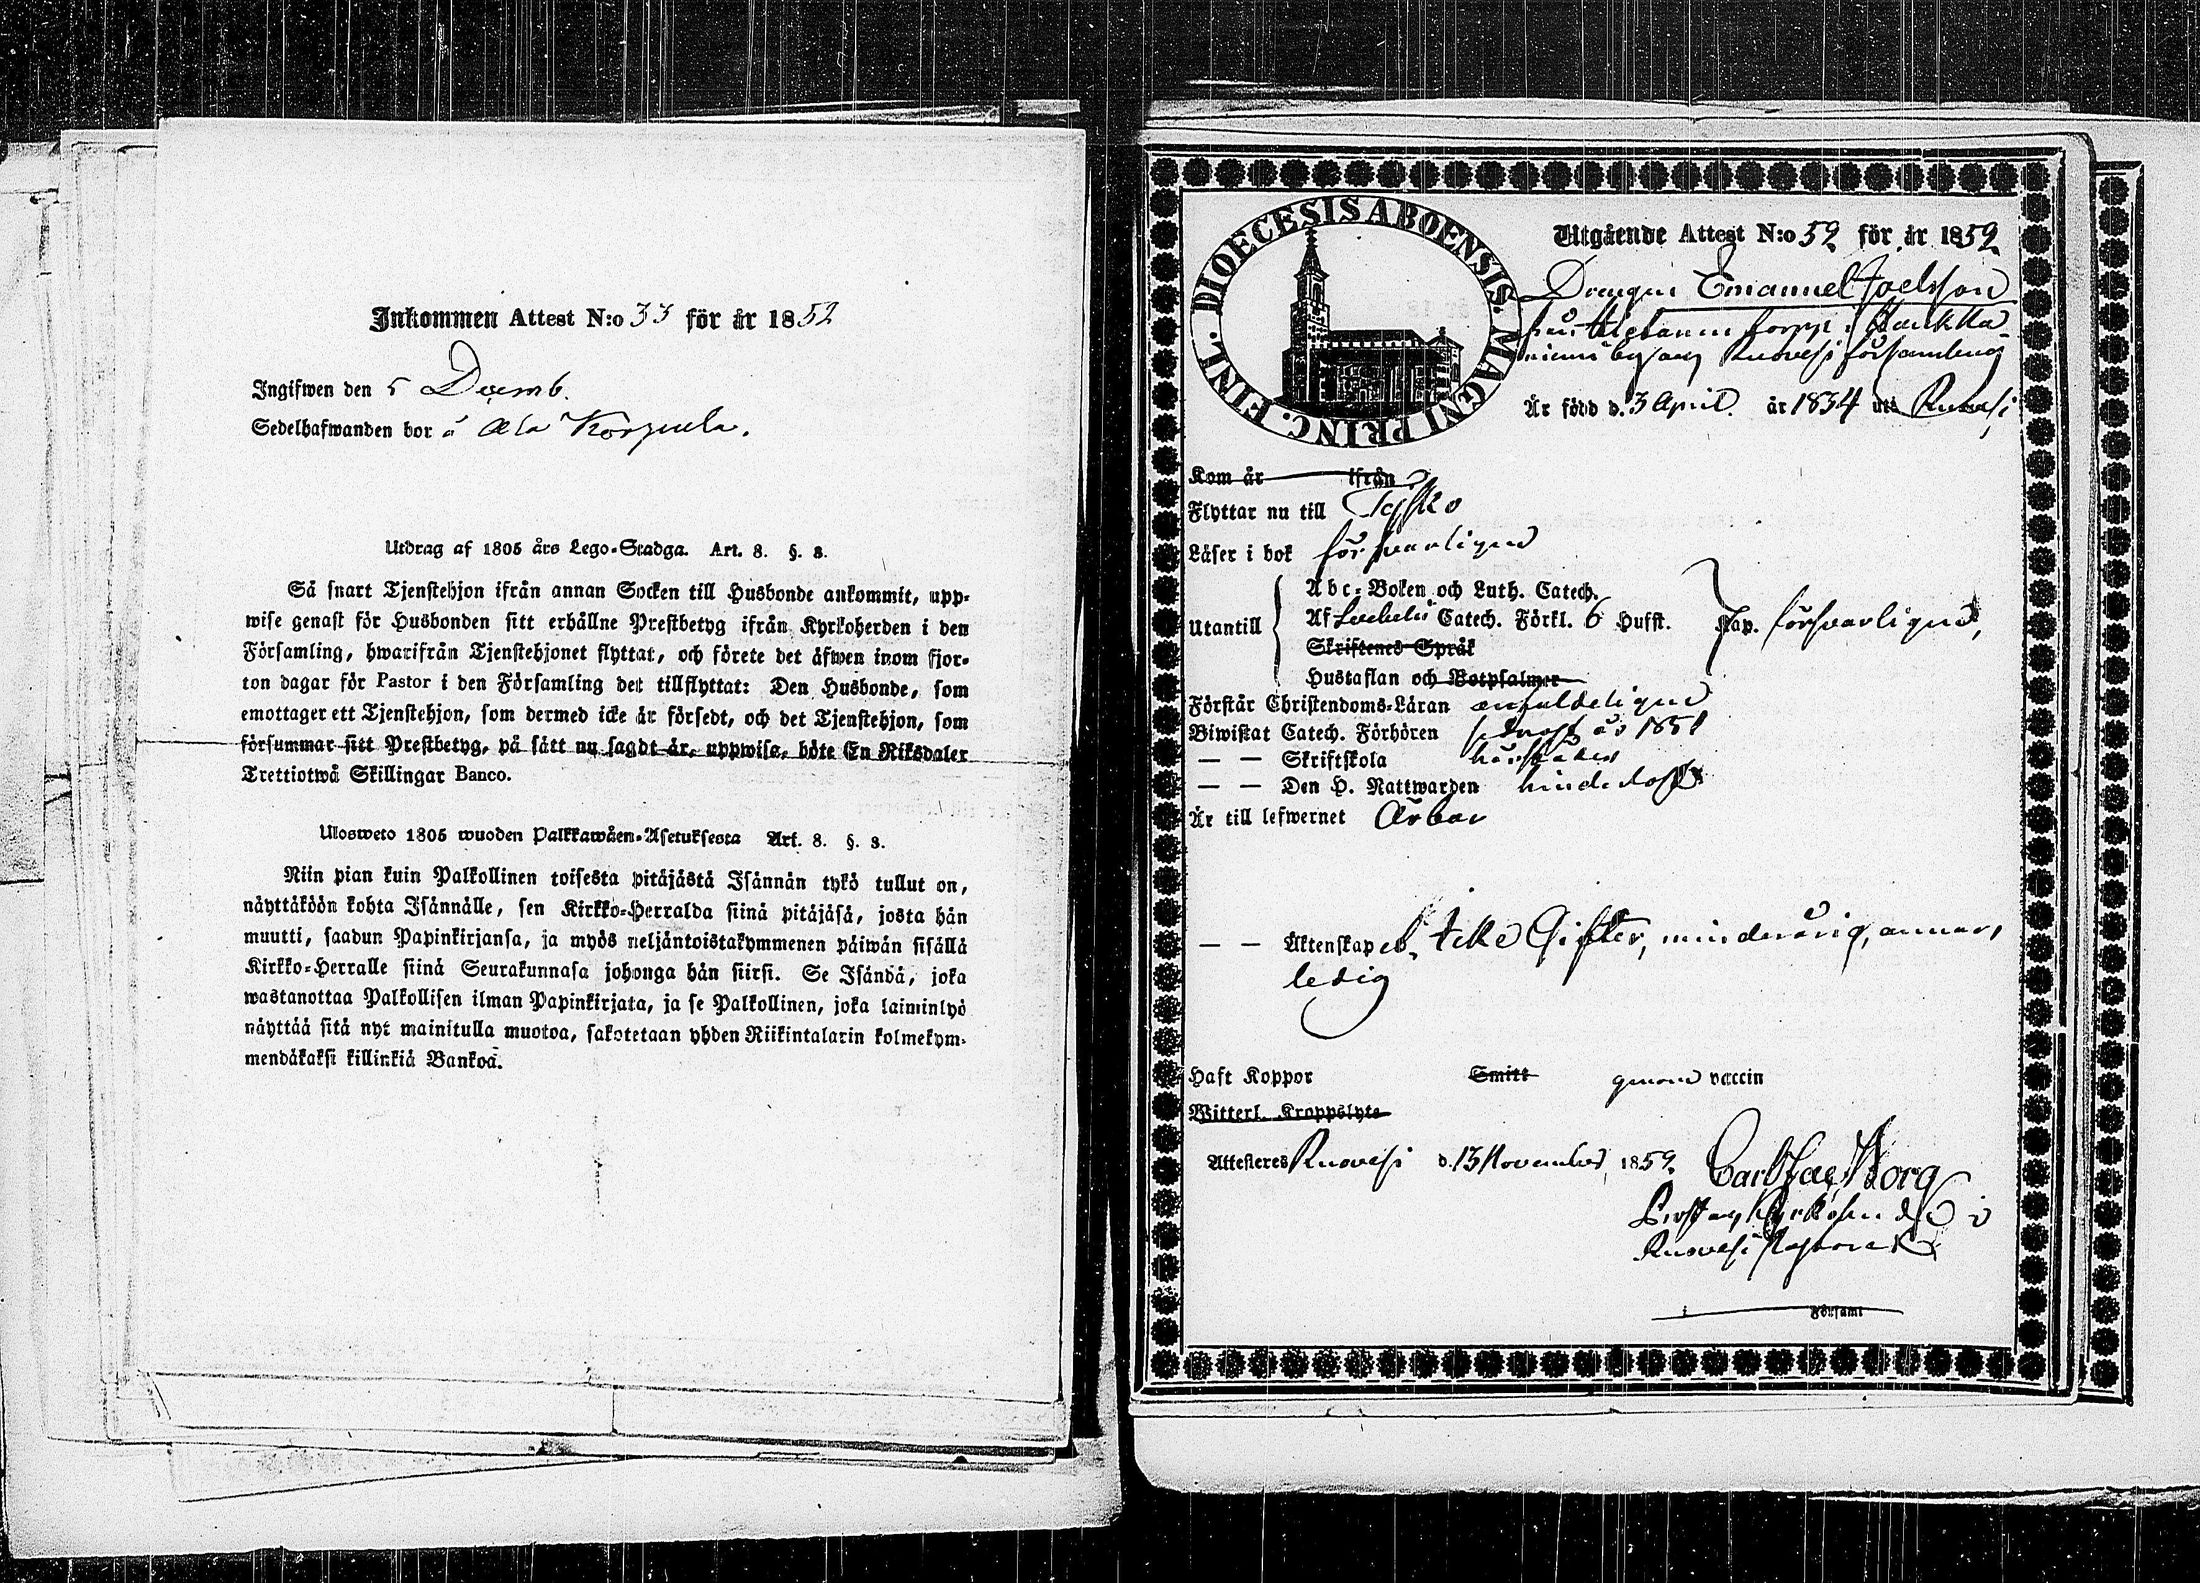 Inkommen Attest N:o 33 för år 1852
Ingifwen den 5 Decemb.
Sedelhafwanden bor å Ala Korpula.
Utdrag af 1805 års Lego-Stadga. Art. 8. §. 8.
Så snart Tjenstehjon ifrån annan Socken till Husbonde ankommit, upp-
wise genast för Husbonden sitt erhållne Prestbetyg ifrån Kyrkoherden i den
Församling, hwarifrån Tjenstehjonet flyttat, och förete det äfwen inom fjor-
ton dagar för Pastor i den Församling det tillflyttat: Den Husbonde, som
emottager ett Tjenstehjon, som dermed icke är försedt, och det Tjenstehjon, som
försummar sitt Prestbetyg, på sätt nu sagdt är, uppwisa, böte En Riksdaler
Trettiotwå Skillingar Banco.
Ulosweto 1805 wuoden Palkkawäen-Asetuksesta Art. 8. §. 8.
Niin pian kuin Palkollinen toisesta pitäjästä Isännän tykö tullut on,
näyttäköön kohta Isännälle, sen Kirkko-Herralda siinä pitäjäsä, josta hän
muutti, saadun Papinkirjansa, ja myös neljäntoistakymmenen päiwän sisällä
Kirkko-Herralle siinä Seurakunnasa johonga hän siirsi. Se Isändä, joka
wastanottaa Palkollisen ilman Papinkirjata, ja se Palkollinen, joka laiminlyö
näyttää sitä nyt mainitulla muotoa, sakotetaan yhden Riikintalarin kolmekym-
mendäkaksi killinkiä Bankoa.
DIOECESIS ABOENSIS. MAGNI PRINC. FINL.
Utgående Attest N:o 52 för år 1852
Drengen Emanuel Joelsson
från torpp i
by af Ruovesi församling
Är född d. 3 April. år 1834 uti Ruovesi
Kom år ifrån
Flyttar nu till
Läser i bok försvarligen
Abc-Boken och Luth. Catech.
Utantill Af Catech. Förkl. 6 Hufst. Kap. försvarligen,
Skriftenes Språk
Hustaflan och Botpsalmer
Förstår Christendoms-Läran enfaldeligen
Biwistat Catech. Förhören sednast år 1851
— — Skriftskola
— — Den H. Nattwarden
Är till lefwernet Ärbar
— — Äktenskapet Icke Gifter, minderårig, annars
ledig
Haft Koppor Smitt genom vaccin
Witterl. Kroppslyte
Attesteres Ruovesi d. 13 November 1852.
Carl Borg
Prost och Kyrkoh i
Ruovesi Pastorat
i Församl